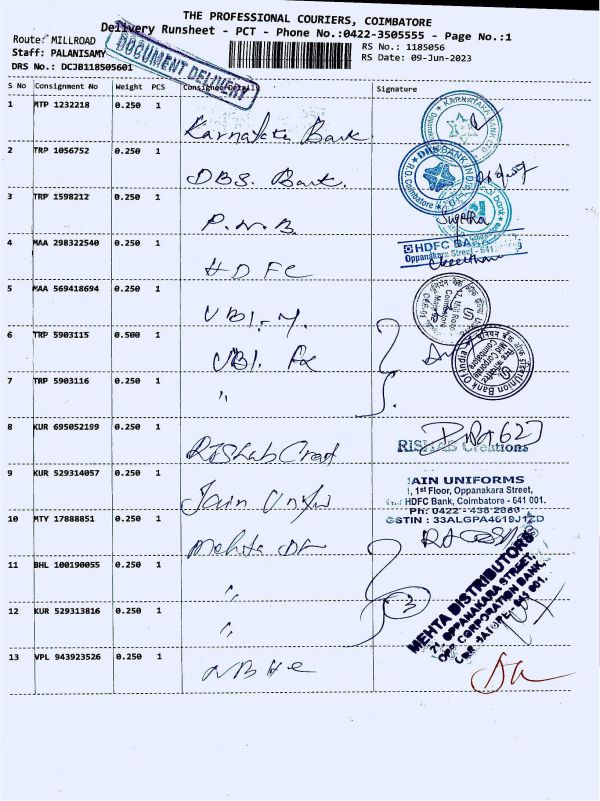 THE PROFESSIONAL COURIERS, COIMBATORE
Delivery Runsheet - PCT - Phone No.:0422-3505555 - Page No.:1
Route: MILLROAD
RS No.: 1185056
Staff: PALANISAMY
RS Date: 09-Jun-2023
DRS No.: DCJB118505601
DOCUMENT DELIVERY
S No Consignment No Weight PCS Consignee Details Signature
1 MTP 1232218 0.250 1 Karnataka Bank
2 TRP 1056752 0.250 1 DBS. Bank.
DBS BANK INDIA
R.O. Coimbatore
3 TRP 1598212 0.250 1 P.N.B. Sugetha
4 MAA 298322540 0.250 1 HDFC
HDFC BANK
Oppanakara Street
5 MAA 569418694 0.250 1 UBI. M.
6 TRP 5903115 0.500 1 UBI.
Union Bank of India
7 TRP 5903116 0.250 1 "
8 KUR 695052199 0.250 1 Rishab Creat
RISHAB Creations
9 KUR 529314057 0.250 1 Jain Unifor
JAIN UNIFORMS
1st Floor, Oppanakara Street,
HDFC Bank, Coimbatore - 641 001.
Ph: 0422 - 438 2886
GSTIN : 33ALGPA4619J1ZD
10 MTY 17888851 0.250 1 Mehta
11 BHL 100190055 0.250 1 "
12 KUR 529313816 0.250 1 " 3
MEHTA DISTRIBUTORS
71, OPPANAKARA STREET,
OPP CORPORATION BANK,
641 001.
13 VPL 943923526 0.250 1